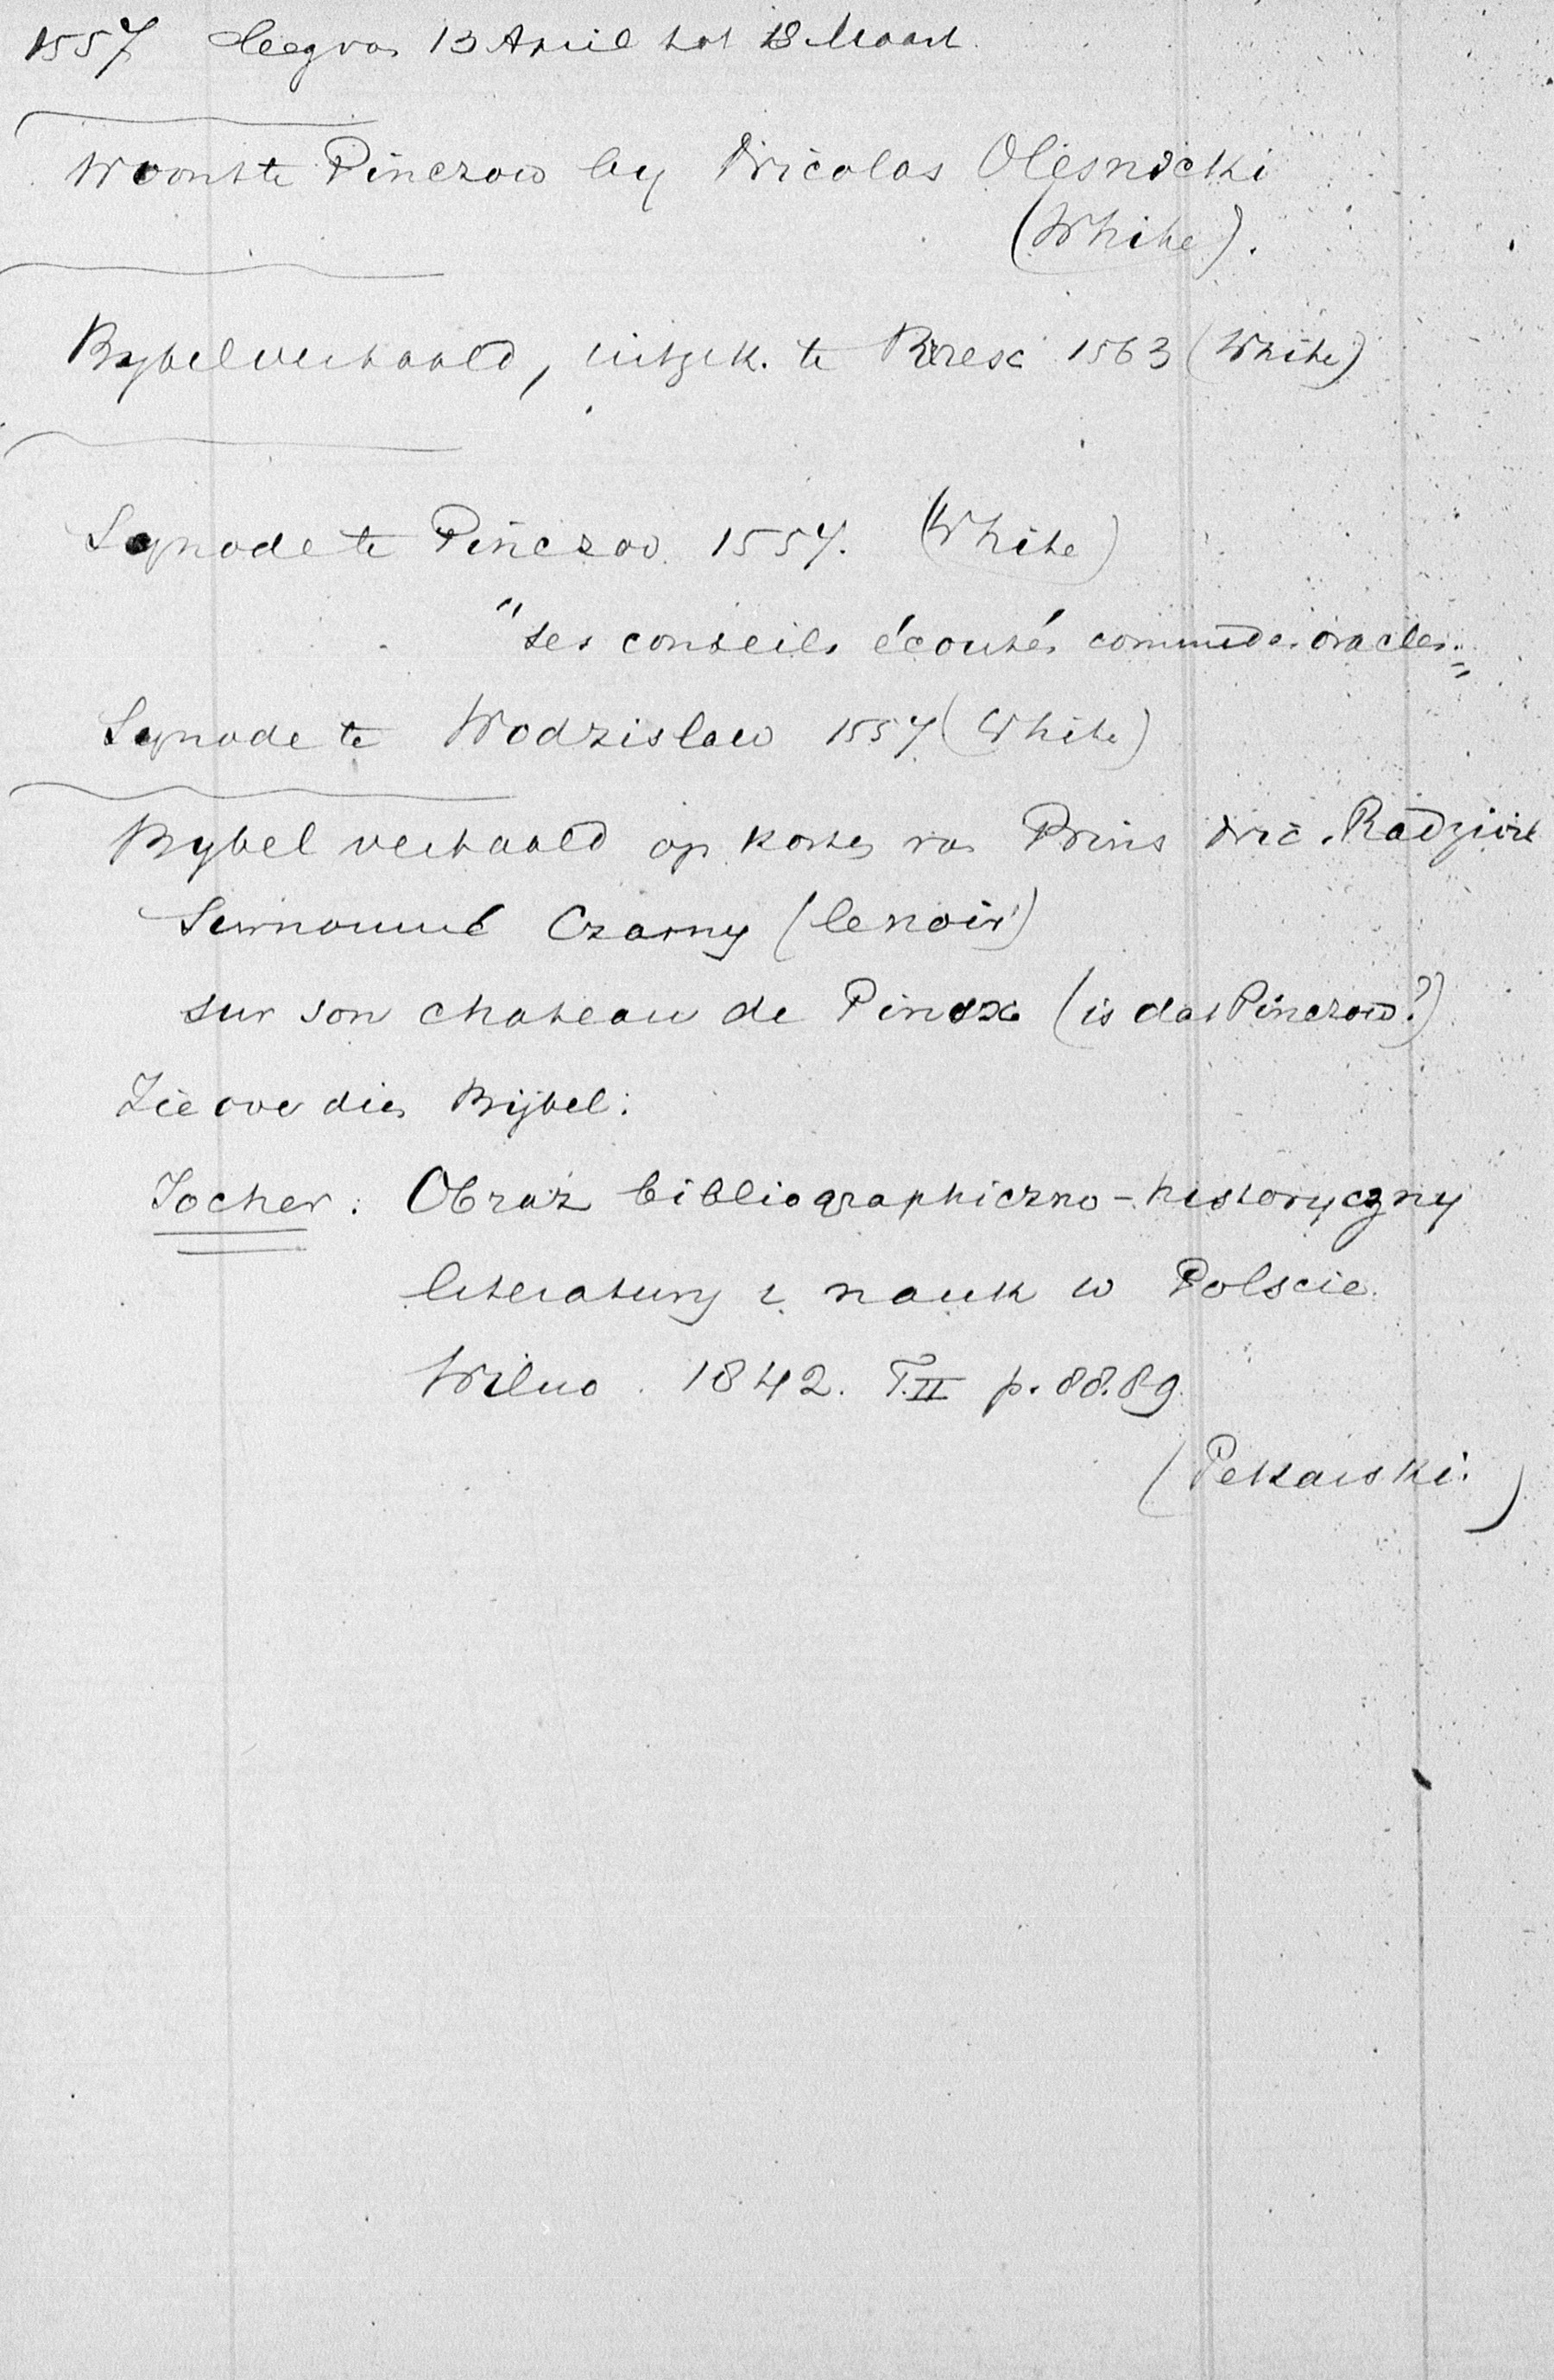 1557 leeg van 13 April tot 18 Maart.
Woonst te Pinczow by Nicolas Olesnicki
(White).
Bybel vertaald, uitgek. te Brzesc 1563 (White)
Synode te Pinczow. 1557. (White)
"ses conseils écoutés comme des oracles."
Synode te Wodzislaw 1557 (White)
Bybel vertaald op kosten van Prins Nic. Radziwil
Surnommé Czarny (le noir)
sur son chateau de Pinsx (is dat Pinczow?)
Zie over dien Bijbel:
Jocher: Obraz bibliographiczno-historyczny
literatury i nauk w Polscie.
Wilno. 1842. T.II p. 88.89.
(Pekarski.)